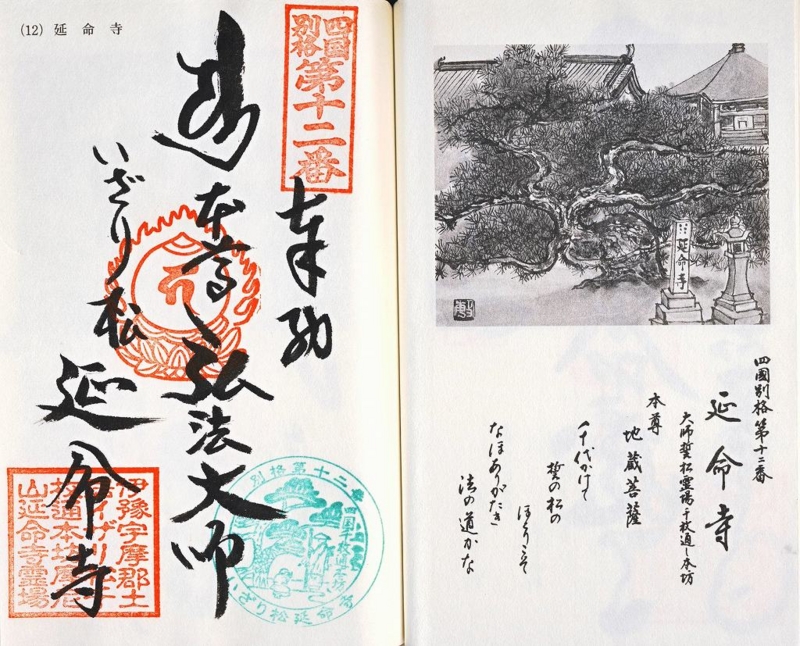 (12) 延命寺
四国
別格
第十二番
奉納
本尊 弘法大師
いざり松
延命寺
伊豫宇摩郡土
山延命寺霊場
別格第十二番
いざり松延命寺
延命寺
四國別格第十二番
延命寺
大師誓松霊場千枚通し本坊
本尊
地蔵菩薩
千代かけて
誓の松の
ほとりこそ
なほありがたき
法の道かな